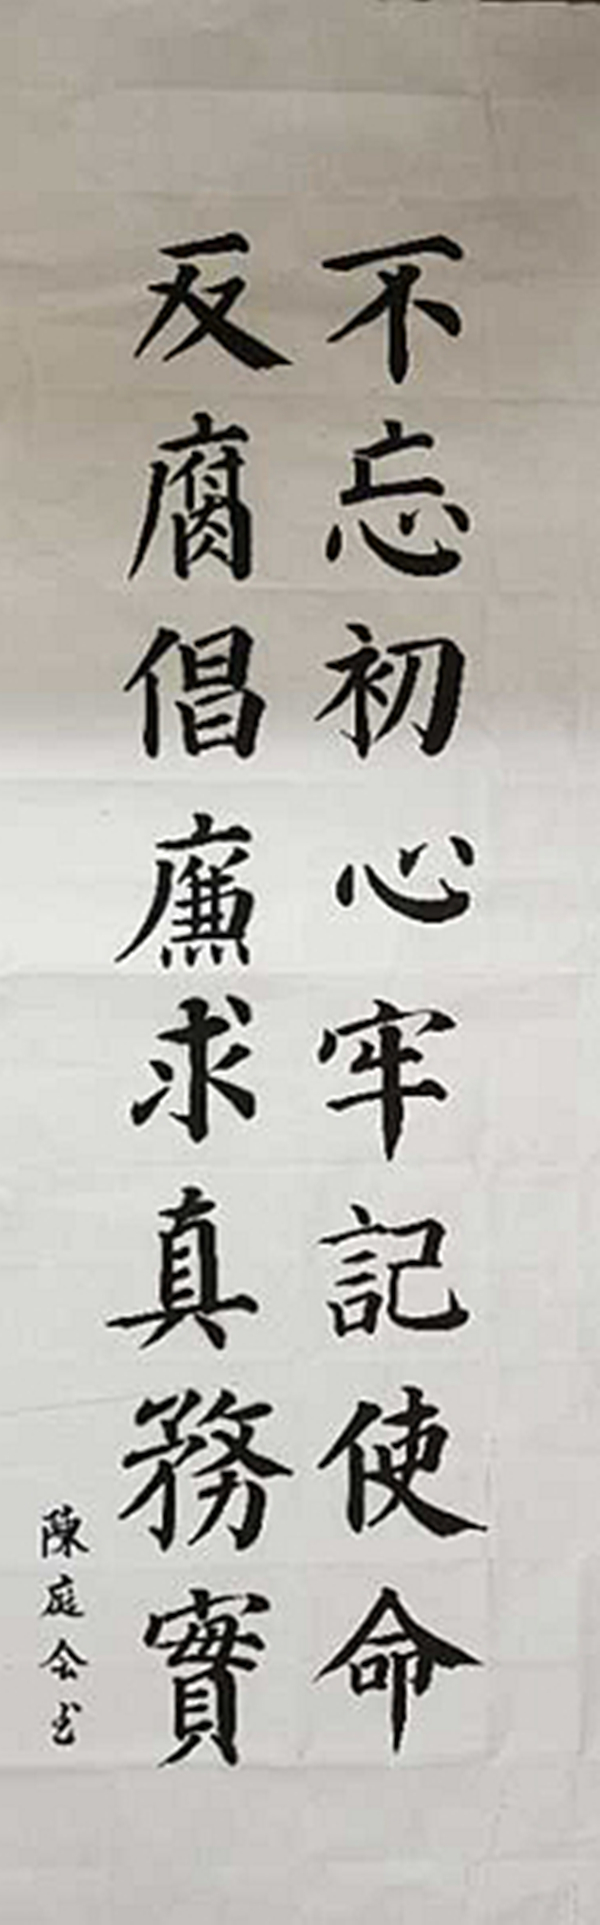 不忘初心牢記使命
反腐倡廉求真務實
陳庭会书